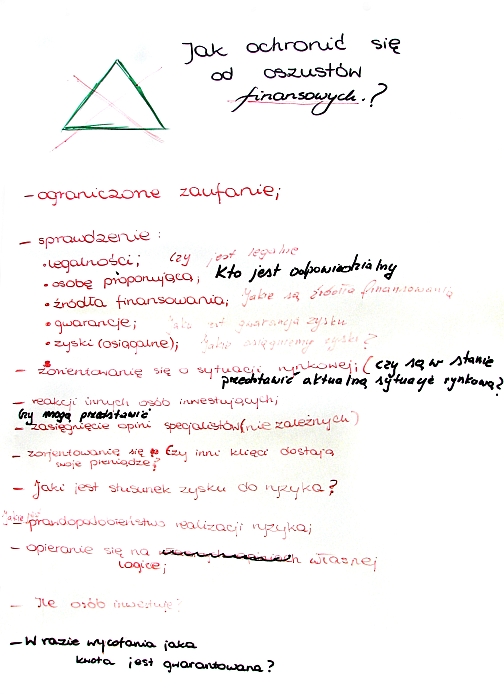 Jak ochronić się
od oszustów
finansowych.?
- ograniczone zaufanie;
- sprawdzenie:
• legalności; Czy jest legalne
• osobę proponującą; Kto jest odpowiedzialny
• źródła finansowania; Jakie są źródła finansowania
• gwarancje; Jaka jest gwarancja zysku
• zyski (osiągalne); Jakie osiągniemy zyski?
- zorientowanie się o sytuacji rynkowej; (czy są w stanie
przedstawić aktualną sytuację rynkową?
- reakcji innych osób inwestujących;
Czy mogą przedstawić
- zasięgnięcie opini specjalistów (nie zależnych)
- zorjentowanie się Czy inni klięci dostają
swoje pieniądze?
- Jaki jest stosunek zysku do ryzyka?
Jakie jest
- prawdopodobieństwo realizacji ryzyka;
- opieranie się na własnej
logice;
- Ile osób inwestuje?
- W razie wycofania jaka
kwota jest gwarantowana?